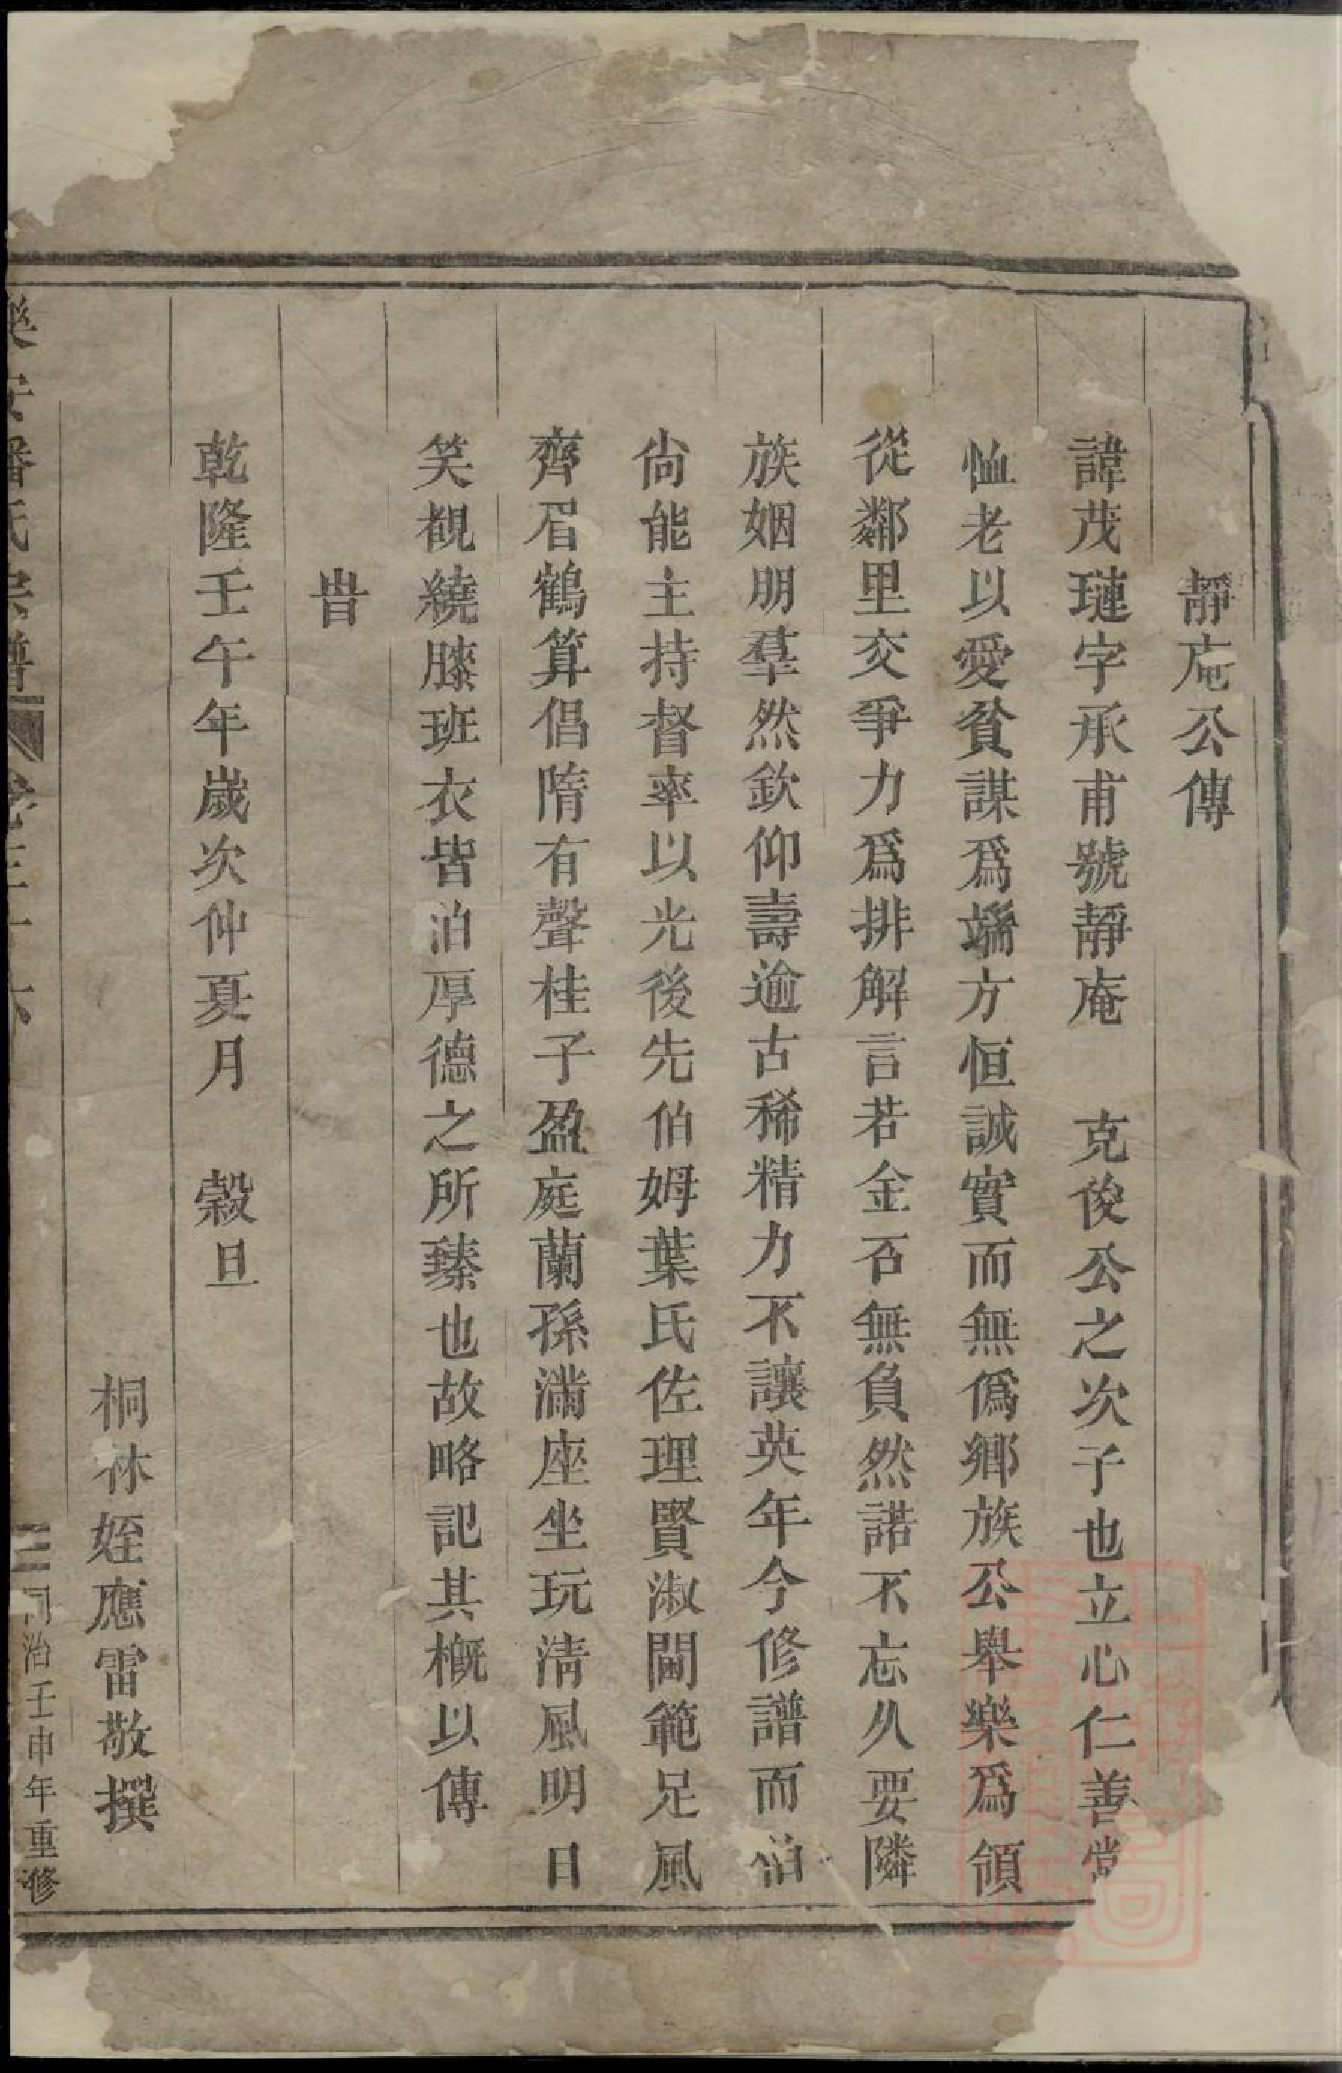 靜庵公傳
諱茂璉字承甫號靜庵　克俊公之次子也立心仁善常
恤老以愛貧謀爲端方恒誠實而無僞鄉族公舉樂爲領
從鄰里交爭力爲排解言若金石無負然諾不忘久要隣
族姻朋羣然欽仰壽逾古稀精力不讓英年今修譜而伯
尙能主持督率以光後先伯姆葉氏佐理賢淑閫範足風
齊眉鶴算倡隋有聲桂子盈庭蘭孫滿座坐玩淸風明日
笑覩繞膝班衣皆伯厚德之所臻也故略記其槪以傳
旹
乾隆壬午年歲次仲夏月　穀旦
桐林姪應雷敬撰
樂安潘氏宗譜　卷三十六　同治壬申年重修